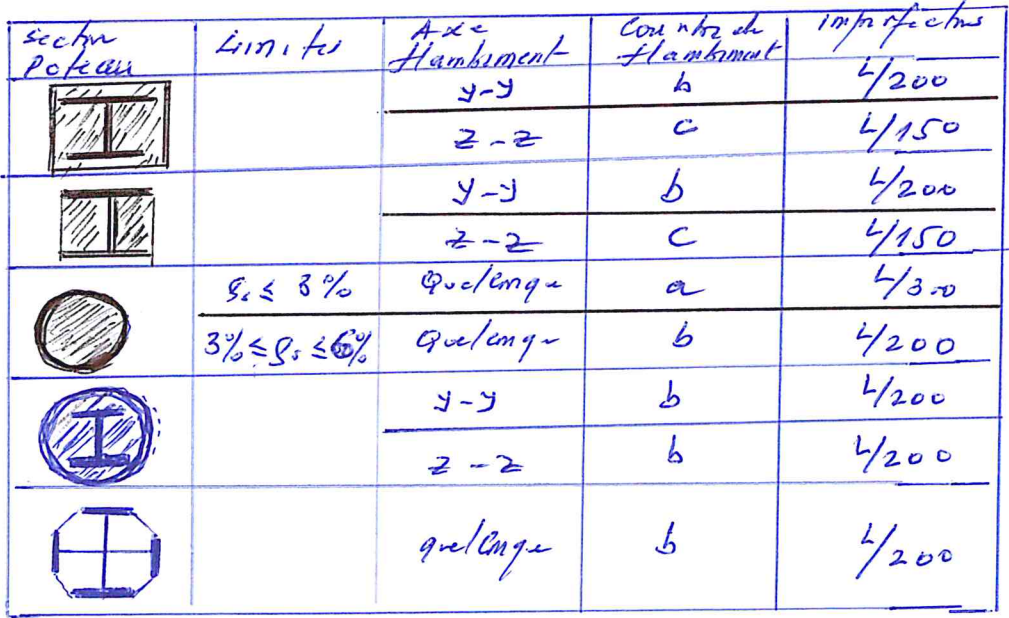 Section Poteau
Limites
Axe flambement
Courbe de flambement
imperfections
y-y b L/200
z-z c L/150
y-y b L/200
z-z c L/150
ρs ≤ 3% Quelconque a L/300
3% ≤ ρs ≤ 6% Quelconque b L/200
y-y b L/200
z-z b L/200
quelconque b L/200